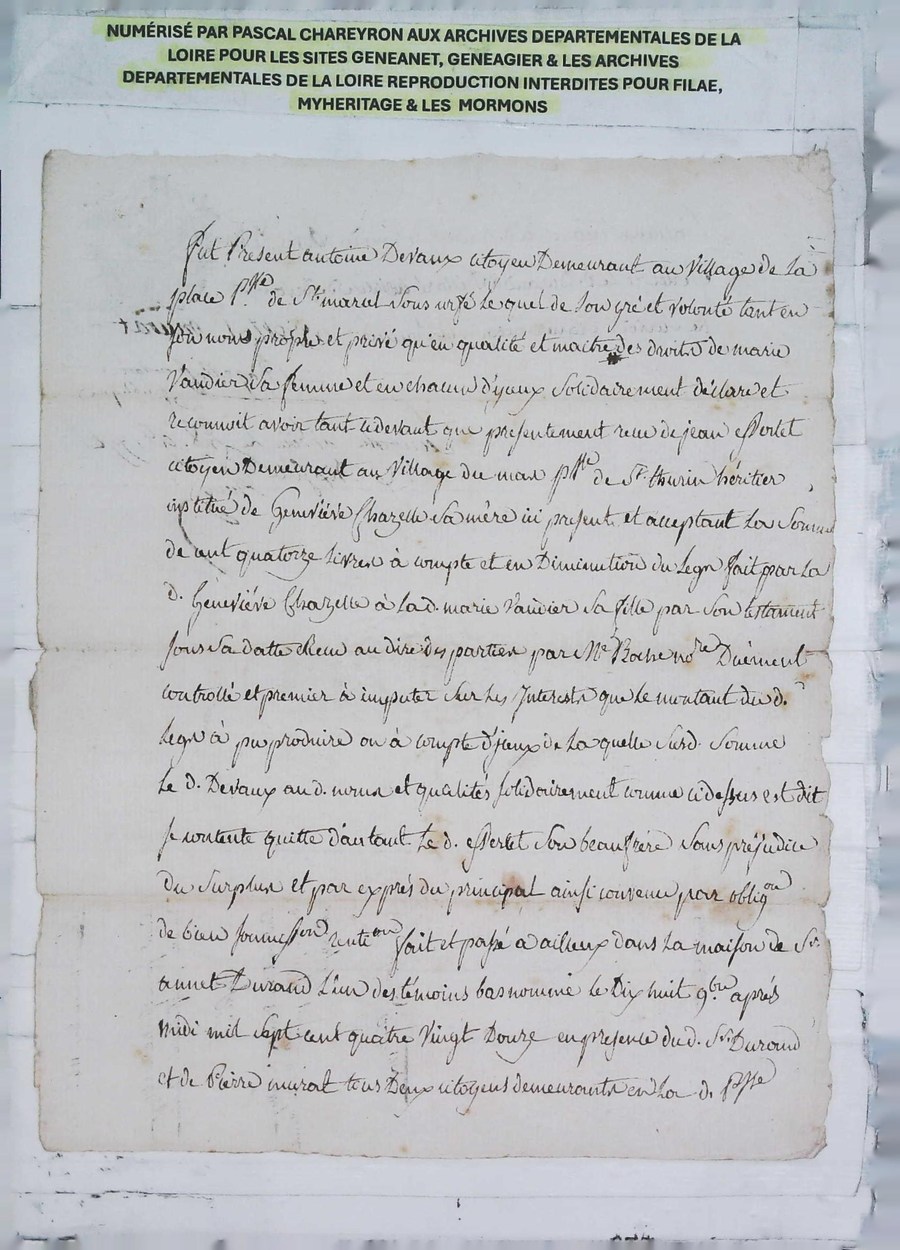 NUMÉRISÉ PAR PASCAL CHAREYRON AUX ARCHIVES DEPARTEMENTALES DE LA
LOIRE POUR LES SITES GENEANET, GENEAGIER & LES ARCHIVES
DEPARTEMENTALES DE LA LOIRE REPRODUCTION INTERDITES POUR FILAE,
MYHERITAGE & LES MORMONS
Fut Présent antoine Devaux citoyen Demeurant au Village de La
place p.sse de St. marcel Sous urfé le quel de Son gré et volonté tant en
Son nom propre et privé qu'en qualité et maitre des droits de marie
Vaudier Sa femme et en chacun d'yceux Solidairement déclare et
reconnoit avoir tant cidevant que présentement recu de jean
citoyen Demeurant au Village du mas p.sse de St. thurin héritier
institué de Geneviéve Chazelle Sa mère ici présent et acceptant La Somme
de cent quatorze livres à compte et en Diminution du Legs fait par La
d. Geneviéve Chazelle à La d. marie Vaudier Sa fille par Son testament
Sous Sa datte Recu au dire des parties par Me Roche no.re Duëment
controllé et premier à imputer Sur Les Interests que Le montant du d.
Legs à pu produire ou à compte d'jceux de La quelle Susd. Somme
Le d. Devaux au d. noms et qualités Solidairement comme cidessus est dit
Se contente quitte d'autant Le d. Son beaufrère Sans préjudice
Du Surplus et par exprés du principal ainsi convenu par oblig.on
de bien Soumission renti.on fait et passé a ailleux dans La maison de Sr.
annet Durand L'un des témoins bas nommé le Dix huit 9.bre aprés
midi mil Sept cent quatre Vingt Douze en présence du d. Sr. Durand
et de Pierre murat tous Deux citoyens demeurants en La d. p.sse